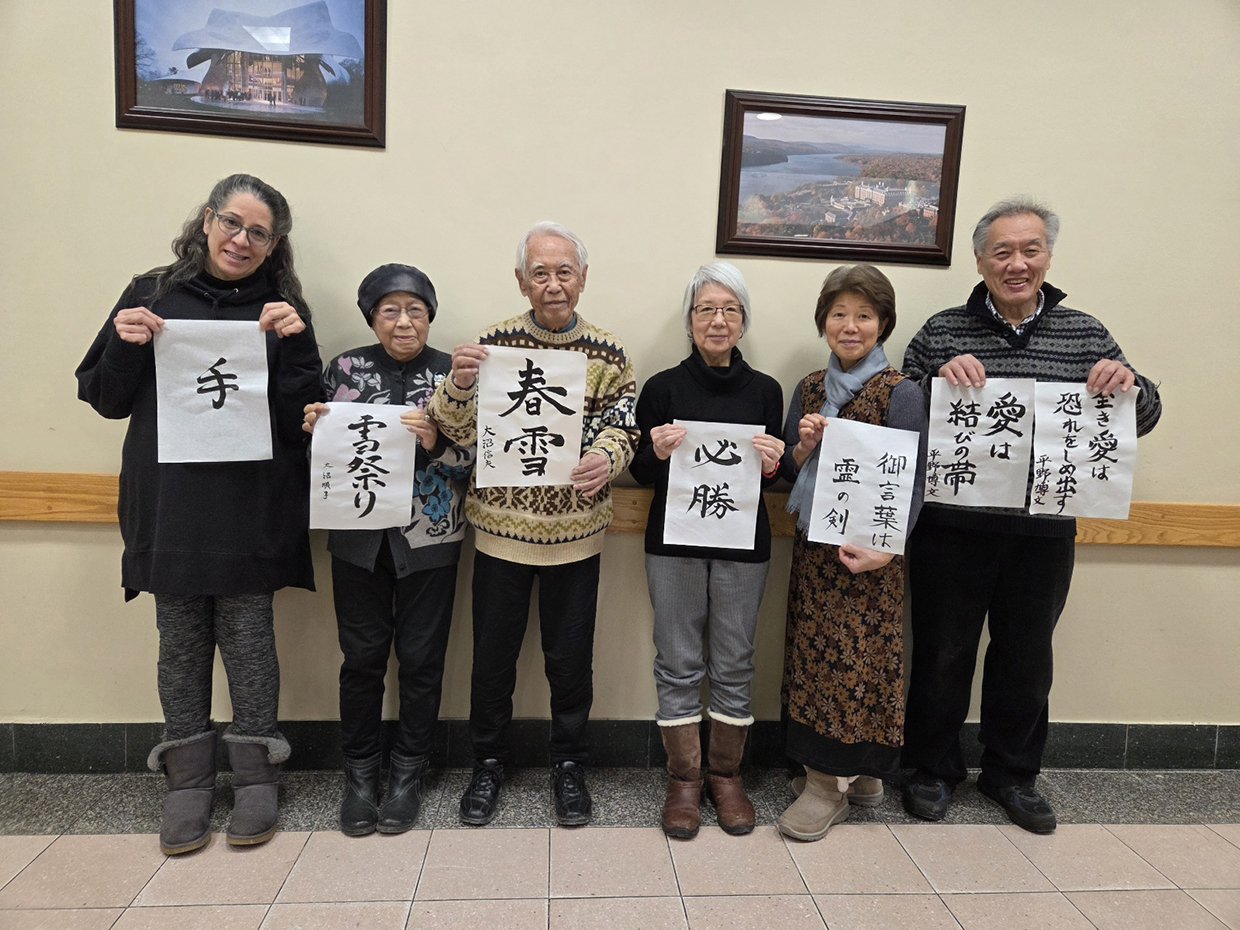 手
雪祭り
大沼順子
春雪
大沼信夫
必勝
御言葉は
霊の剣
愛は
結びの帯
平野博文
全き愛は
恐れをしめ出す
平野博文